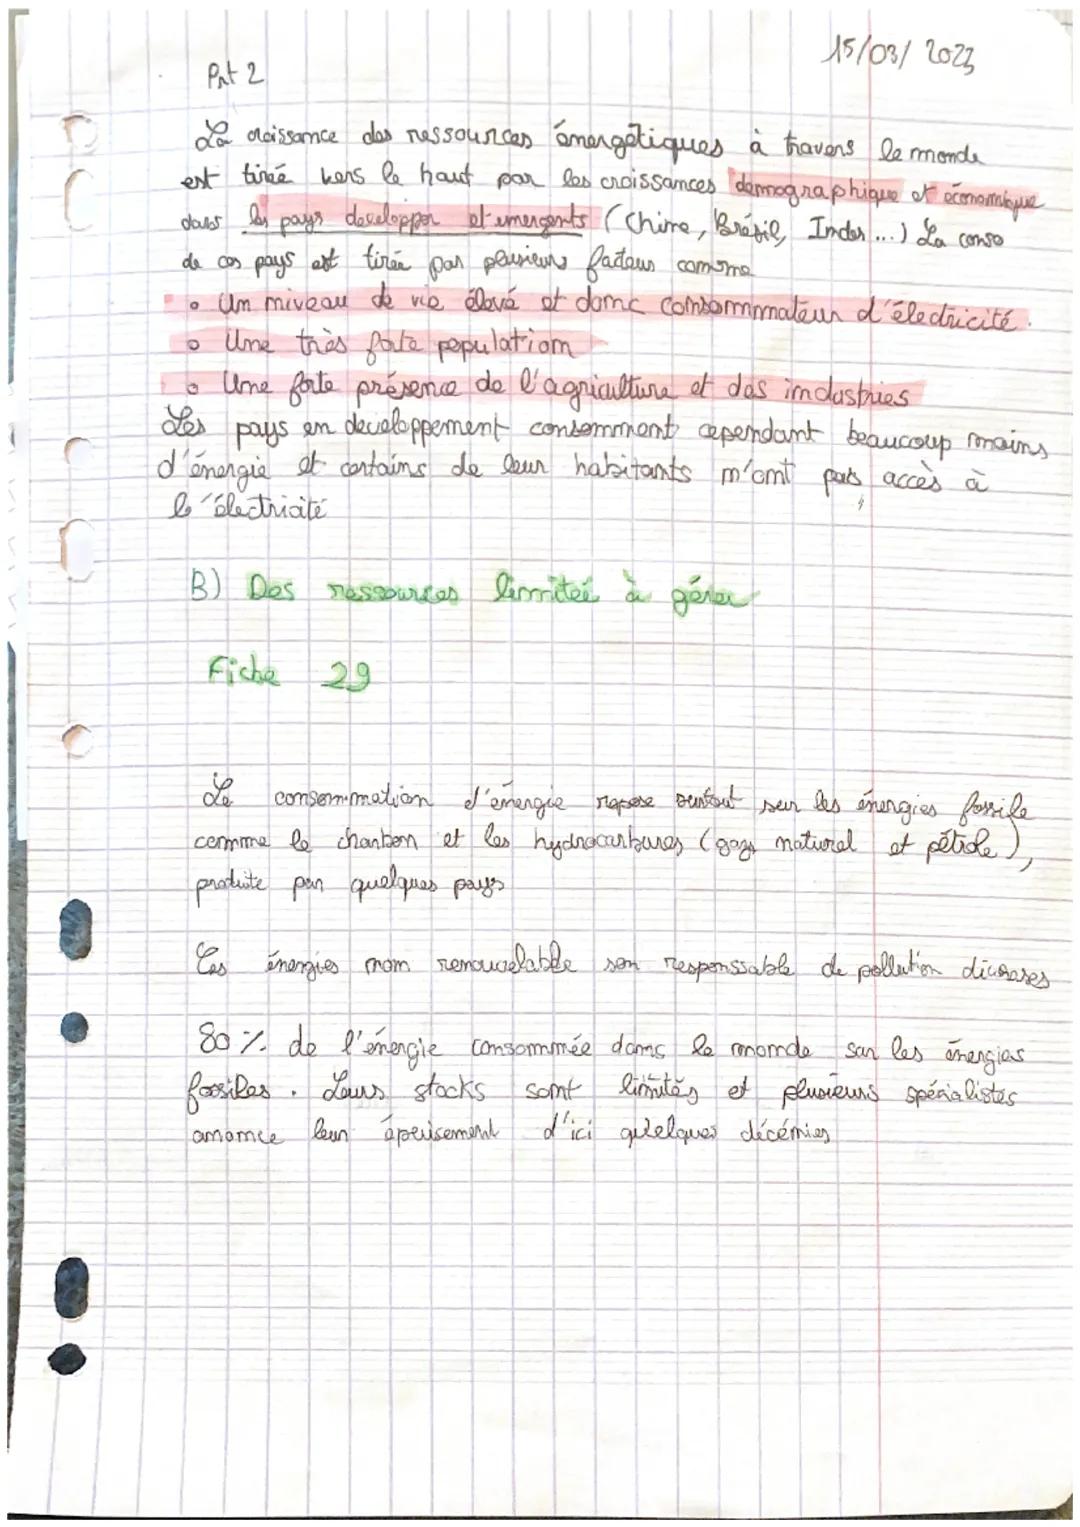 15/03/2023
Prt 2
La croissance des ressources énergétiques à travers le monde
est tirée vers le haut par les croissances démographique et économique
dans les pays developper et emergents (Chine, Brésil, Indes ...) La conso
de ces pays est tirée par plusieurs facteurs comme
• Un niveau de vie élevé et donc consommmateur d'électricité.
• Une très forte population
• Une forte présence de l'agriculture et des industries
Les pays en developpement consomment cependant beaucoup moins
d'énergie et certains de leur habitants n'ont pas accès à
l'électricité
B) Des ressources limiteé à gérer
Fiche 29
La consommation d'énergie repose surtout sur les énergies fossile
comme le charbon et les hydrocarbures (gazs naturel et pétrole),
produite par quelques pays
Ces énergies non renouvelable son responssable de pollution diverses
80 % de l'énergie consommée dans le monde son les énergies
fossiles. Leurs stocks sont limités et plusieurs spécialistes
anonnce leur épuisement d'ici quelques décénnies